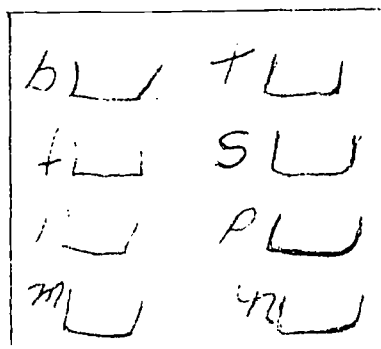 b t
f s
p
m n